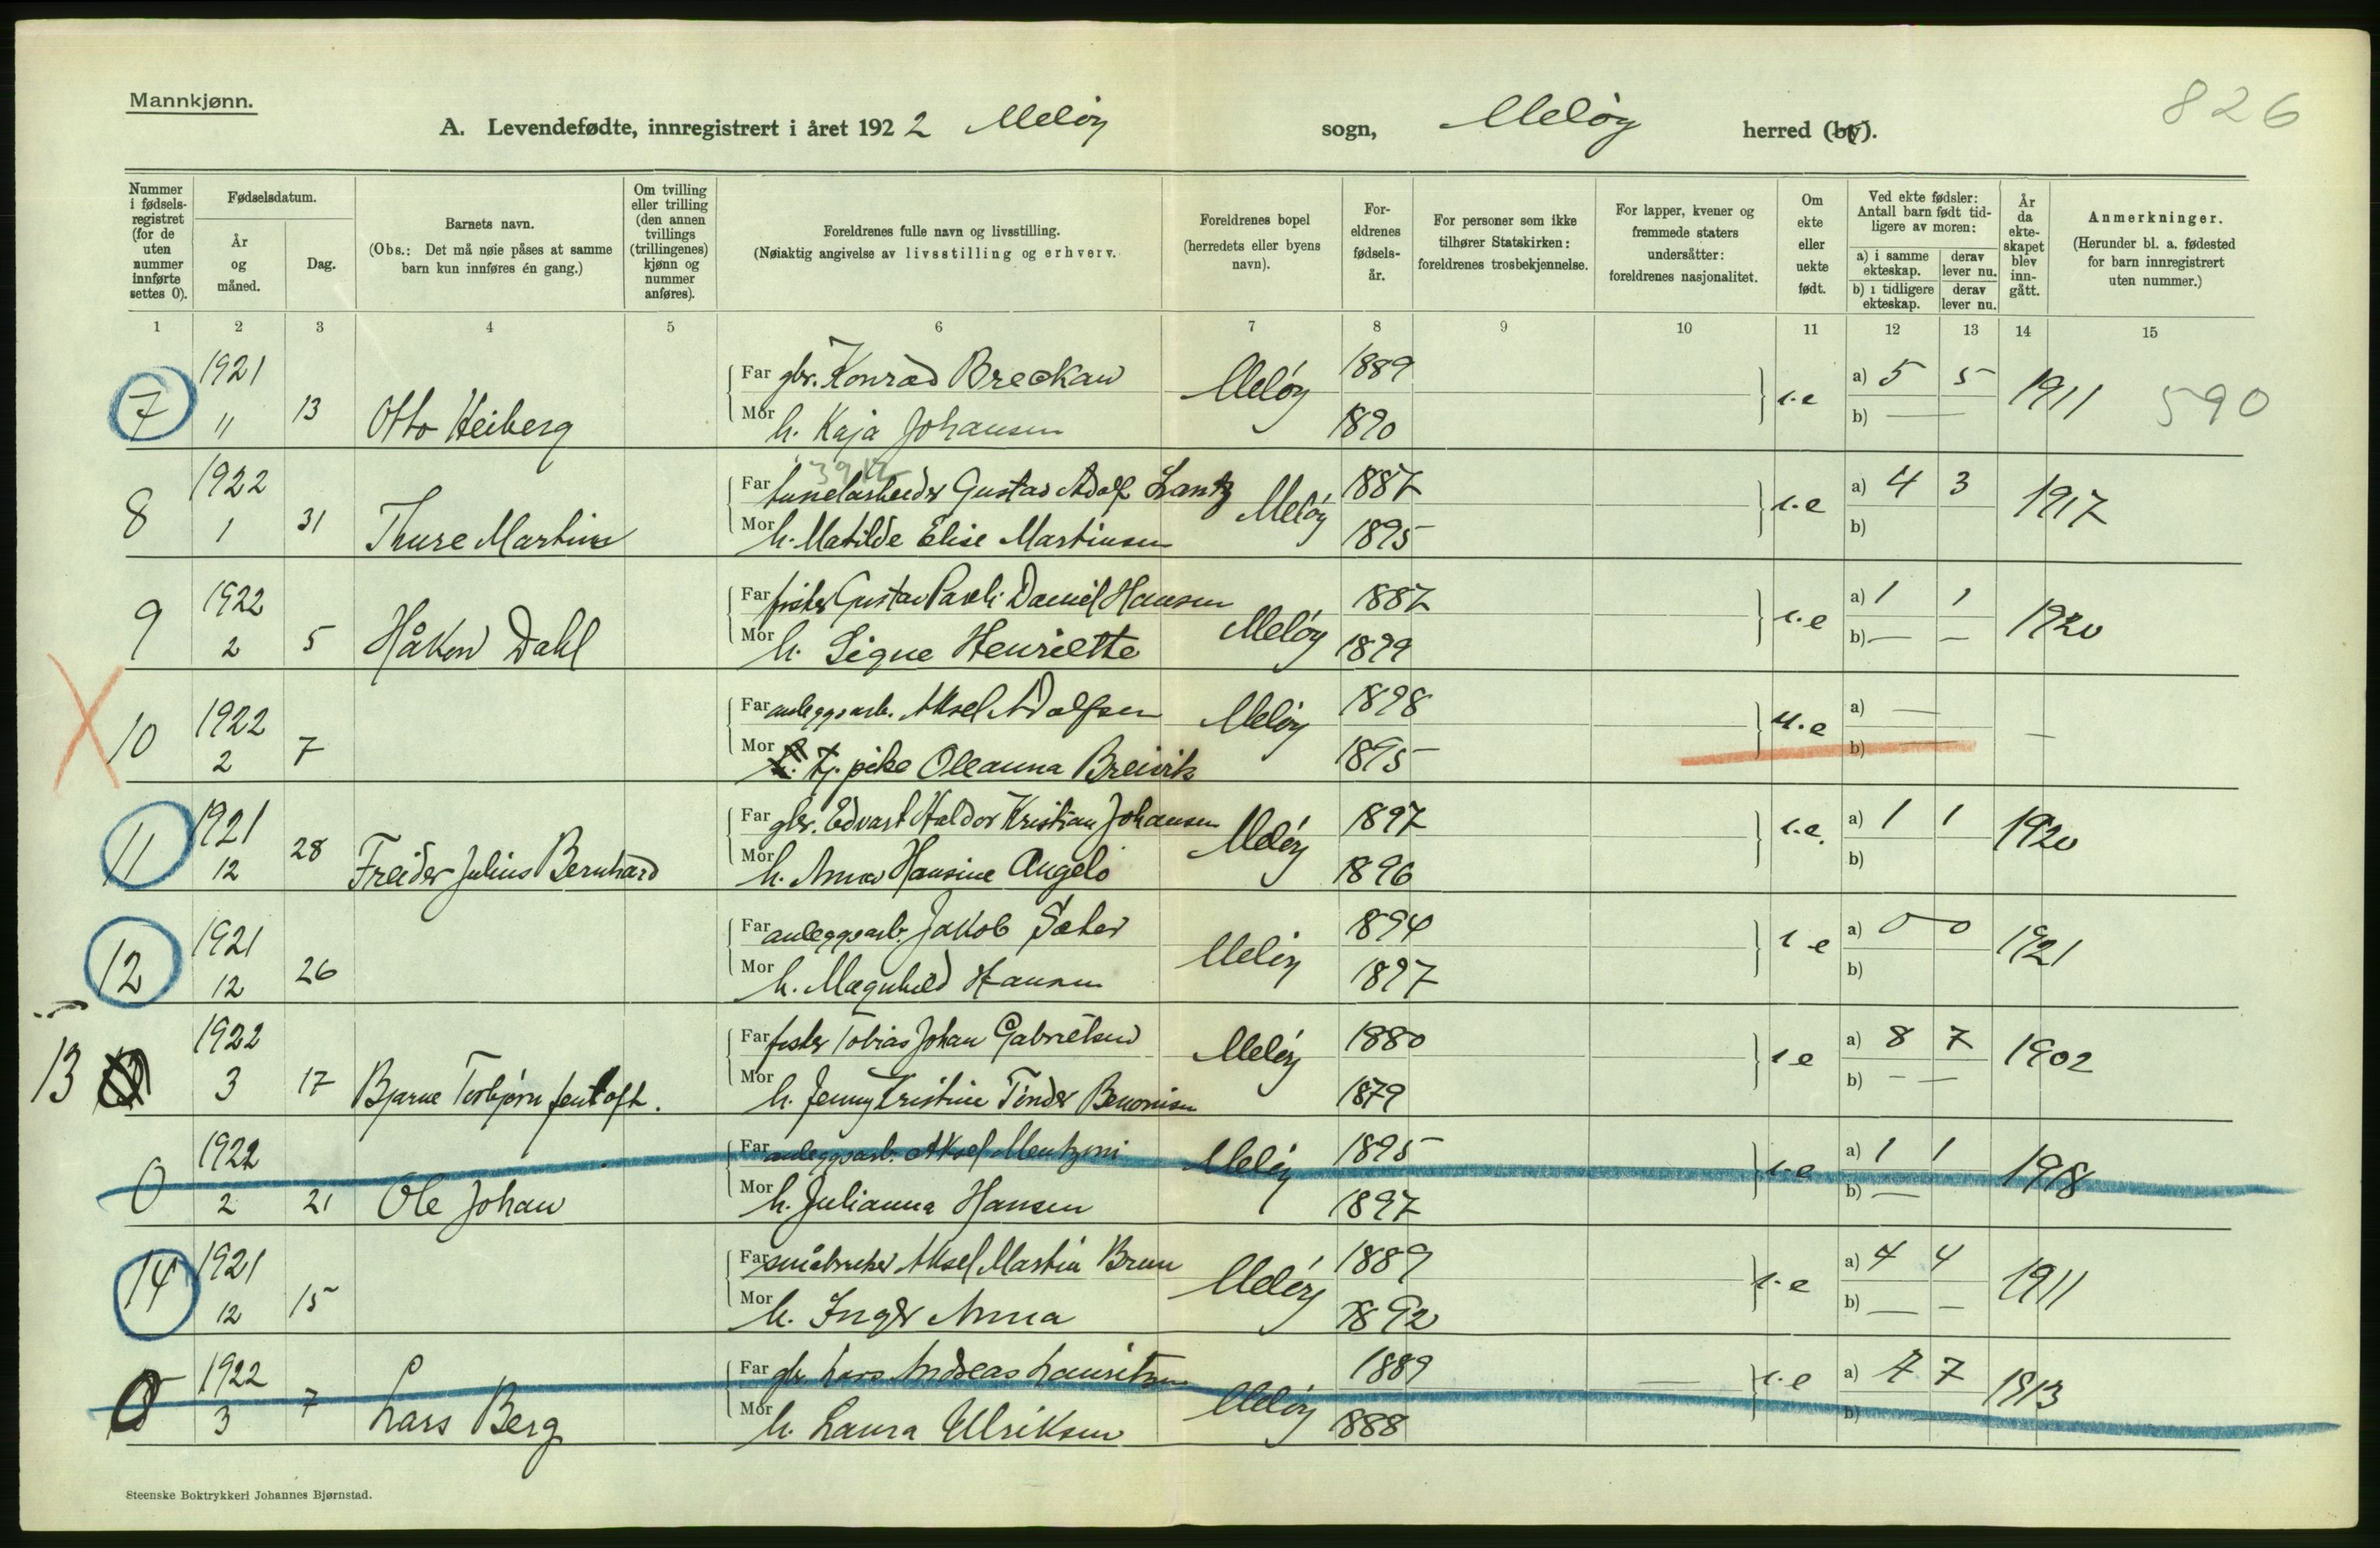 Mannkjønn.
826
A. Levendefødte, innregistrert i året 1922 Meløy sogn, Meløy herred (by).
Nummer i fødsels-registret (for de uten nummer innførte settes 0).
Fødselsdatum.
År og måned.
Dag.
Barnets navn.
(Obs.: Det må nøie påses at samme barn kun innføres én gang.)
Om tvilling eller trilling (den annen tvillings (trillingenes) kjønn og nummer anføres).
Foreldrenes fulle navn og livsstilling.
(Nøiaktig angivelse av livsstilling og erhverv.
Foreldrenes bopel (herredets eller byens navn).
For-eldrenes fødsels-år.
For personer som ikke tilhører Statskirken: foreldrenes trosbekjennelse.
For lapper, kvener og fremmede staters undersåtter: foreldrenes nasjonalitet.
Om ekte eller uekte født.
Ved ekte fødsler: Antall barn født tid-ligere av moren:
a) i samme ekteskap.
derav lever nu.
b) i tidligere ekteskap.
derav lever nu.
År da ekte-skapet blev inn-gått.
Anmerkninger.
(Herunder bl. a. fødested for barn innregistrert uten nummer.)
1 2 3 4 5 6 7 8 9 10 11 12 13 14 15
7 1921 11 13 Otto Heiberg
Far gbr. Konrad Breckan Meløy 1889 a) 5 5
Mor h. Kaja Johansen 1890 e.e b) — 1911 590
8 1922 1 31 Thure Martin
Far Gustav Adolf Lantz Meløy 1887 a) 4 3
Mor h. Matilde Elise Martinsen 1895 e.e b) 1917
9 1922 2 5 Håkon Dahl
Far fisker Gustav Pareli Daniel Hansen Meløy 1887 a) 1 1
Mor h. Signe Henriette 1899 e.e b) — — 1920
10 1922 2 7
Far anleggsarb. Aksel Adolfsen Meløy 1898 a) —
Mor tj. pike Oleanna Breivik 1895 u.e b) — —
11 1921 12 28 Freider Julius Bernhard
Far gbr. Edvart Haldor Kristian Johansen Meløy 1897 a) 1 1
Mor h. Anna Hansine Angelo 1896 e.e. b) 1920
12 1921 12 26
Far anleggsarb. Jakob Sæter Meløy 1894 a) 0 0
Mor h. Magnhild Hansen 1897 e e b) 1921
13 1922 3 17 Bjarne Torbjørn Jentoft.
Far fisker Tobias Johan Gabrielsen Meløy 1880 a) 8 7
Mor h. Jenny Kristine Tinder Benonisen 1879 e e b) — — 1902
0 1922 2 21 Ole Johan
Far anleggsarb. Aksel Mentzoni Meløy 1895 a) 1 1
Mor h. Julianna Hansen 1897 e.e b) — 1918
14 1921 12 15
Far småbruker Aksel Martin Brun Meløy 1889 a) 4 4
Mor h. Inger Anna 1892 e.e b) — — 1911
0 1922 3 7 Lars Berg
Far gbr. Lars Andreas Lauritsen Meløy 1889 — e.e a) 7 7
Mor h. Laura Ulriksen 1888 b) 1913
Steenske Boktrykkeri Johannes Bjørnstad.